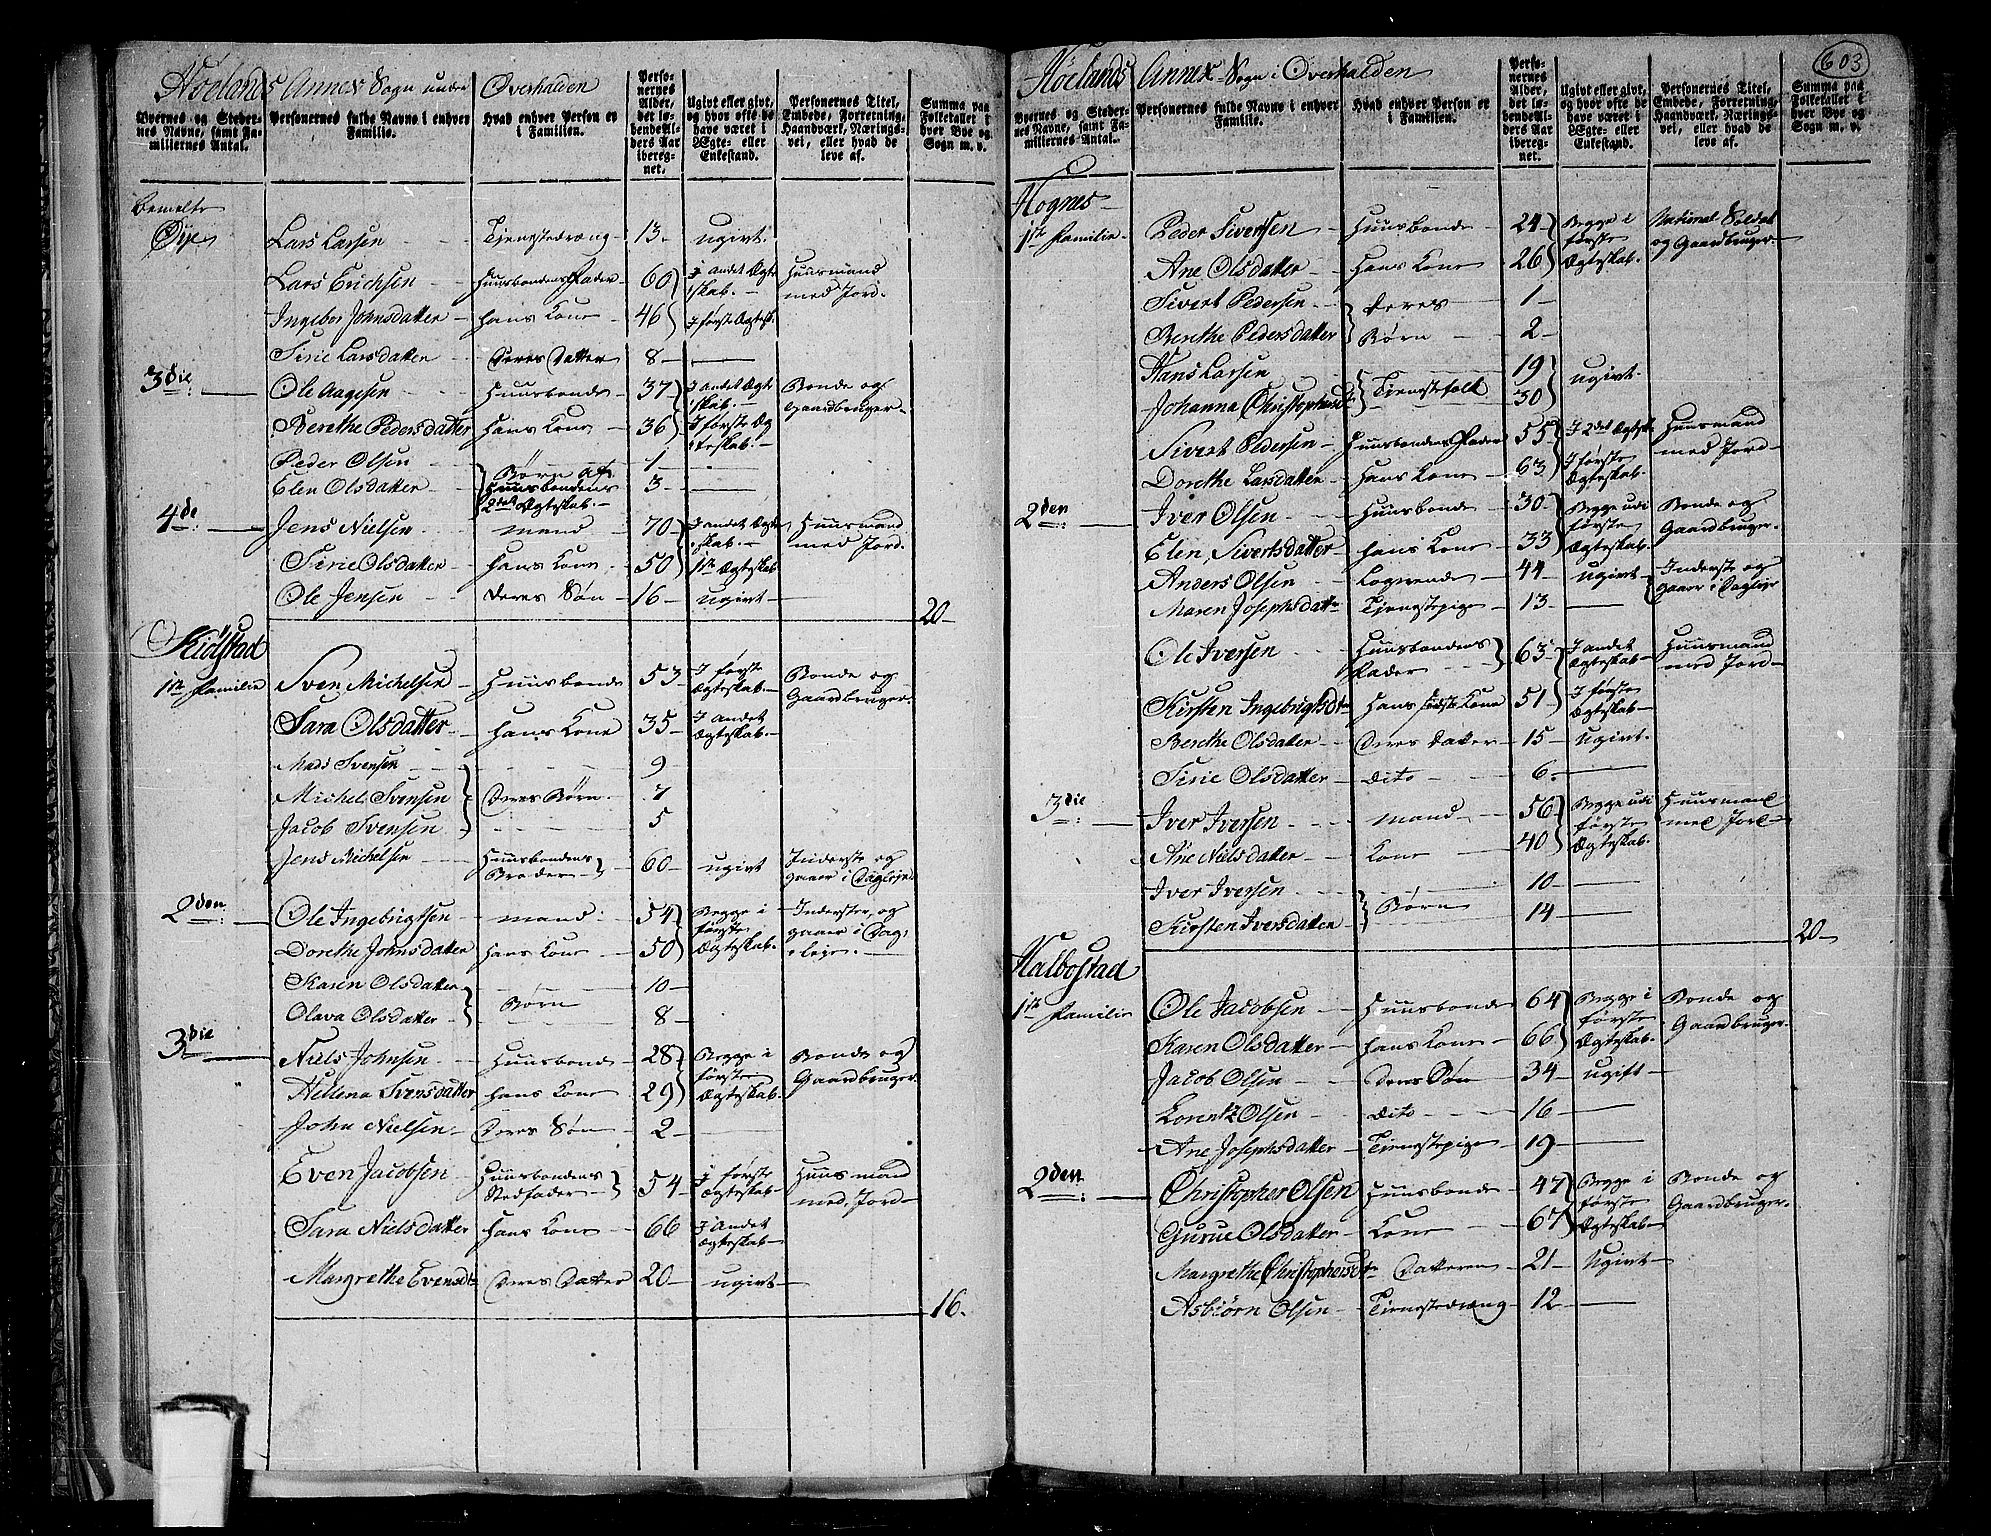 Høelands Annex Sogn under Overhalden
Byernes og Stedernes Navne, samt Familiernes Antal.
Personernes fulde Navne i enhver Familie.
Hvad enhver Person er i Familien.
Personernes Alder, det løbende Alders Aar iberegnet.
Ugivt eller givt, og hvor ofte de have været i Ægte- eller Enkestand.
Personernes Titel, Embede, Forretning, Haandværk, Næringsvei, eller hvad de leve af.
Summa paa Folketallet i hver Bye og Sogn m. v.
bemelte
Øye Lars Larsen Tjenestedreng 13 ugivt
Lars Erichsen Huusbondens Fader 60 I andet Ægteskab Huusmand med Jord
Ingebor Johnsdatter hans Kone 46 I første Ægtesk.
Sirie Larsdatter Deres Datter 8
3die Ole Aagesen Huusbonde 37 I andet Ægteskab Bonde og Gaardbruger
Berethe Pedersdatter Hans Kone 36 I første Ægteskab
Peder Olsen 1
Elen Olsdatter Børn af Huusbondens 2det Ægteskab 3
4de Jens Nielsen Mand 70 I andet Ægteskab Huusmand med Jord
Sirie Olsdatter Hans Kone 50 1ste Ægteskab
Ole Jensen Deres Søn 16 ugivt
20
Kiølstad
1te Familie Sven Michelsen Huusbonde 53 I første Ægteskab Bonde og Gaardbruger
Sara Olsdatter Hans Kone 35 I andet Ægteskab
Mads Svensen 9
Michel Svensen Deres Børn 7
Jacob Svensen 5
Jens Michelsen Huusbondens Broder 60 ugivt Inderste og gaaer i Dagleje
2den Ole Ingebrigtsen Mand 54 Begge i første Ægteskab Inderster, og gaaer i Dagleje
Dorethe Johnsdatter Hans Kone 50
Karen Olsdatter 10
Olava Olsdatter Børn 8
3die Niels Johnsen Huusbonde 28 Begge i første Ægteskab Bonde og Gaardbruger
Hellena Svensdatter hans Kone 29
John Nielsen Deres Søn 2
Even Jacobsen Huusbondens Stedfader 54 I første Ægteskab Huusmand med Jord
Sara Nielsdatter Hans Kone 66 I Andet Ægteskab
Margrethe Evensdtr Deres Datter 20 ugivt
16.
603
Høelands Annex Sogn i Overhalden
Byernes og Stedernes Navne, samt Familiernes Antal.
Personernes fulde Navne i enhver Familie.
Hvad enhver Person er i Familien.
Personernes Alder, det løbende Alders Aar iberegnet.
Ugivt eller givt, og hvor ofte de have været i Ægte- eller Enkestand.
Personernes Titel, Embede, Forretning, Haandværk, Næringsvei, eller hvad de leve af.
Summa paa Folketallet i hver Bye og Sogn m. v.
Hognes
1te Familie Peder Sivertsen Huusbonde 24 Begge i første Ægteskab National Soldat og Gaardbruger
Ane Olsdatter Hans Kone 26
Sivert Pedersen Deres 1
Berethe Pedersdatter Børn 2
Hans Larsen 19 ugivt
Johanna Christophersdtr Tjenestefolk 30
Sivert Pedersen Huusbondens Fader 55 I 2det Ægtesk. Huusmand med Jord
Dorethe Larsdatter Hans Kone 63 I første Ægteskab
2den Iver Olsen Huusbonde 30 Begge udi første Ægteskab Bonde og Gaardbruger
Elen Sivertsdatter Hans Kone 33
Anders Olsen Logerende 44 ugivt Inderste og gaaer i Dagleje
Maren Josephsdatter Tjenestepige 13
Ole Iversen Huusbondens Fader 63 I andet Ægteskab Huusmand med Jord
Kirsten Ingebrigtsdtr Hans sidste Kone 51 I første Ægteskab
Berethe Olsdatter Deres Datter 15 ugivt
Sirie Olsdatter Dito 6
3die Iver Iversen Mand 56 Begge udi første Ægteskab Huusmand med Jord
Ane Nielsdatter Kone 40
Iver Iversen 10
Kirsten Iversdatter Børn 14
20
Halbostad
1te Familie Ole Jacobsen Huusbonde 64 Begge i første Ægteskab Bonde og Gaardbruger
Karen Olsdatter Hans Kone 66
Jacob Olsen Deres Søn 34 ugift
Lorentz Olsen Dito 16
Ane Josephsdatter Tjenestepige 19
2den Christopher Olsen Huusbonde 47 Begge i første Ægteskab Bonde og Gaardbruger
Gurue Olsdatter Kone 67
Margrethe Christophersdtr Datteren 21 Ugivt
Asbiørn Olsen Tienestedreng 12